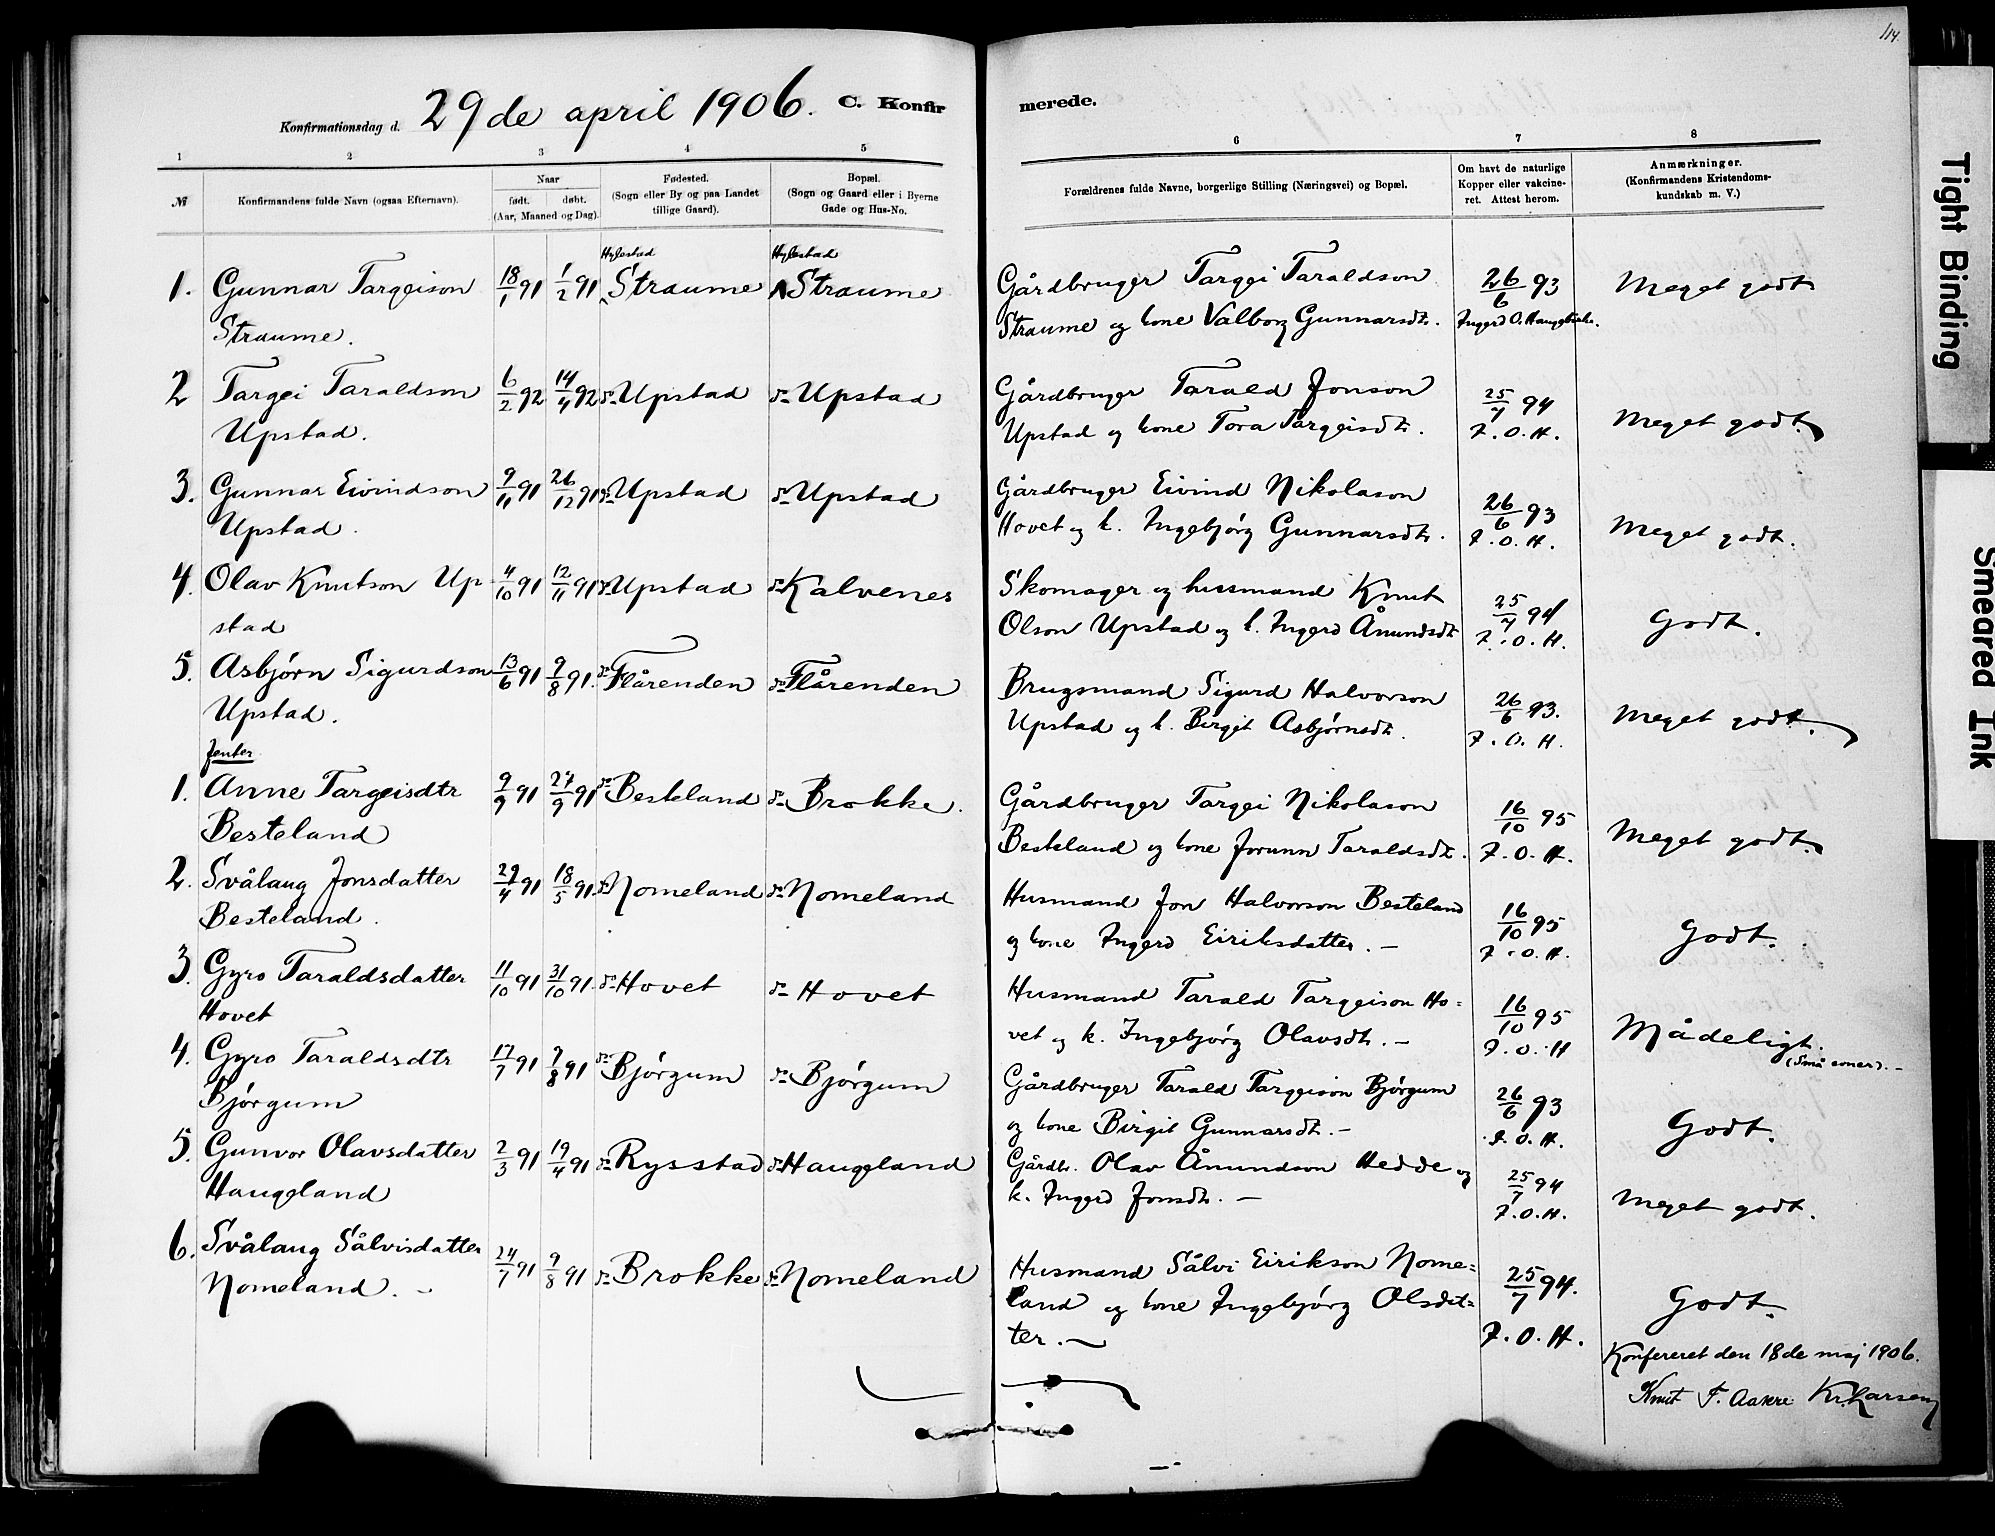 114.
Konfirmationsdag d. 29de april 1906. C. Konfir
merede.
1 2 3 4 5
6 7 8
№ Konfirmandens fulde Navn (ogsaa Efternavn). Naar født. døbt. (Aar, Maaned og Dag). Fødested. (Sogn eller By og paa Landet tillige Gaard). Bopæl. (Sogn og Gaard eller i Byerne Gade og Hus-No.
Forældrenes fulde Navne, borgerlige Stilling (Næringsvei) og Bopæl. Om havt de naturlige Kopper eller vakcineret. Attest herom. Anmærkninger. (Konfirmandens Kristendomskundskab m. V.)
Hylestad Hylestad
1. Gunnar Targeison 18/1 91 1/2 91 Straume Straume Gårdbruger Targei Taraldson 26/6 93 Meget godt
Straume. Straume og kone Valborg Gunnarsdtr. Ingerd O. Haugebirke.
2 Targei Taraldson 6/2 92 14/4 92 do Upstad do Upstad Gårdbruger Tarald Jonson 25/7 94 Meget godt.
Upstad. Upstad og kone Tora Targeisdtr. I. O. H.
3. Gunnar Eivindson 9/11 91 26/12 91 do Upstad do Upstad Gårdbruger Eivind Nikolason 26/6 93 Meget godt.
Upstad. Hovet og k. Ingebjørg Gunnarsdtr. I. O. H.
4. Olav Knutson Up- 4/10 91 12/11 91 do Upstad do Kalvenes Skomager og husmand Knut 25/7 94 Godt.
stad Olson Upstad og k. Ingerd Ånundsdtr I. O. H.
5. Asbjørn Sigurdson 13/6 91 9/8 91. do Flårenden do Flårenden Brugsmand Sigurd Halvorson 26/6 93. Meget godt.
Upstad. Upstad og k. Birgit Asbjørnsdtr. I. O. H.
Jenter
1. Anne Targeisdtr 9/9 91 27/9 91 do Besteland do Brokke. Gårdbruger Targei Nikolason 16/10 95 Meget godt.
Besteland Besteland og kone Jorunn Taraldsdtr. I. O. H.
2. Svålaug Jonsdatter 29/4 91 18/5 91 do Nomeland do Nomeland Husmand Jon Halvorson Besteland 16/10 95 Godt.
Besteland. og kone Ingerd Eiriksdatter. – I. O. H.
3. Gyro Taraldsdatter 11/10 91 31/10 91. do Hovet do Hovet Husmand Tarald Targeison Ho= 16/10 95 Mådeligt.
Hovet vet og k. Ingebjørg Olavsdtr. – I. O. H (Små evner). –
4. Gyro Taraldsdtr 17/7 91 9/8 91 do Bjórgum do Bjórgum Gårdbruger Tarald Targeison Bjórgum 26/6 93 Godt.
Bjórgum og kone Birgit Gunnarsdtr. – I. O. H.
5. Gunvor Olavsdatter 2/3 91 19/4 91 do Rysstad do Haugeland Gårdbr. Olav Ånundson Hedde og 25/7 94 Meget godt.
Haugeland k. Ingerd Jonsdtr. – I. O. H.
6. Svålaug Sålvisdatter 24/7 91 9/8 91 do Brokke do Nomeland Husmand Sålvi Eirikson Nome= 25/7 94. Godt.
Nomeland. – land og kone Ingebjórg Olsdat=
ter. – I. O. H.
Konfereret den 18de maj 1906.
Knut T. Aakre Kr. Larsen
Tight Binding
Smeared Ink